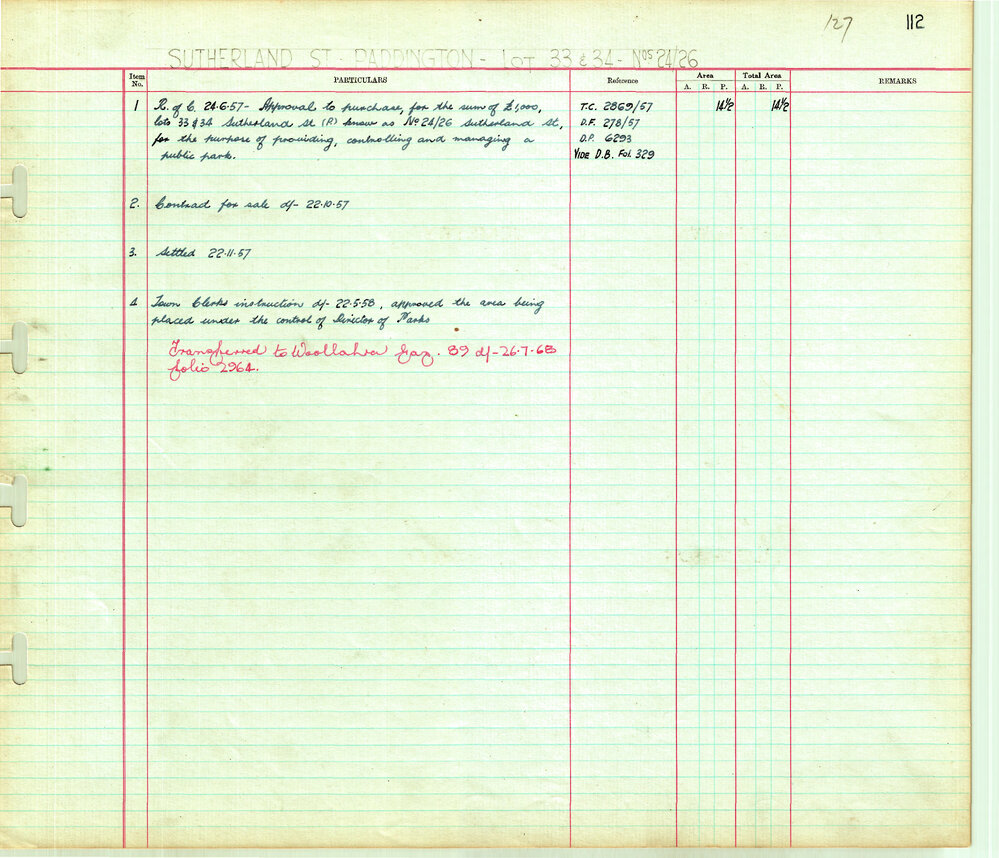 127 112
SUTHERLAND ST - PADDINGTON - LOT 33 & 34 - NOS 24/26
Item No. PARTICULARS Reference Area Total Area REMARKS
A. R. P. A. R. P.
1 R. of C. 24.6.57 - Approval to purchase, for the sum of £1,000, T.C. 2869/57 14½ 14½
lots 33 & 34 Sutherland St (P) know as No 24/26 Sutherland St, D.F. 278/57
for the purpose of providing, controlling and managing a D.P. 6293
public park. VIDE D.B. Fol. 329
2. Contract for sale d/- 22.10.57
3. Settled 22.11.57
4 Town Clerks instruction d/- 22.5.58, approved the area being
placed under the control of Director of Parks
Transferred to Woollahra Gaz. 89 d/- 26.7.68
folio 2964.